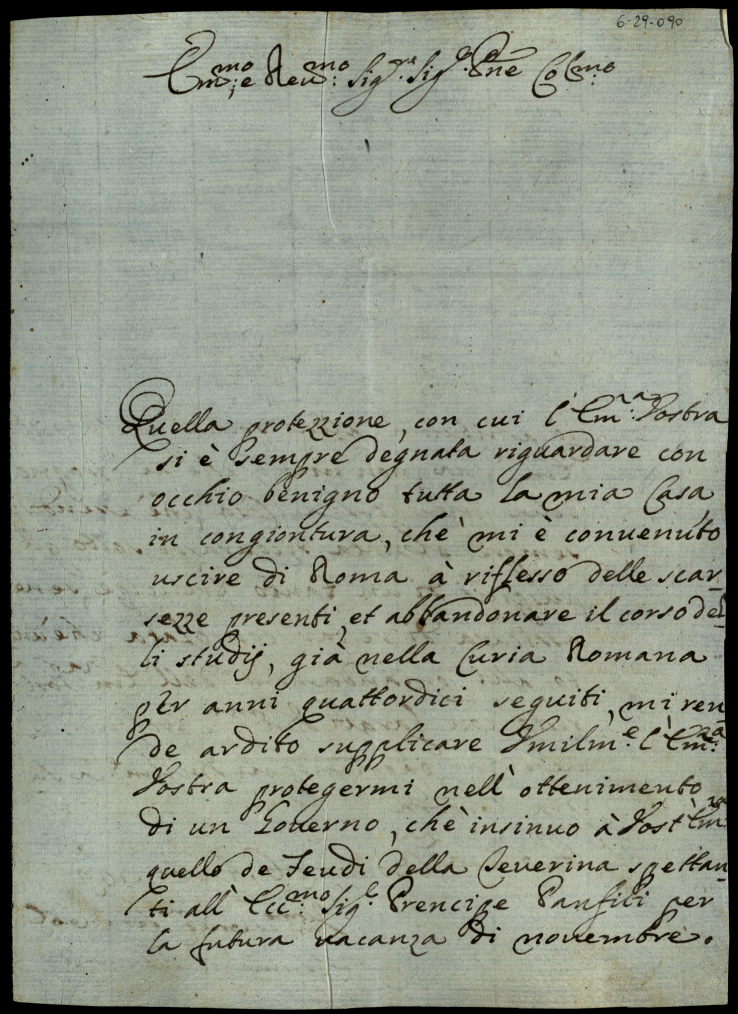 6-29-090
Em.mo e Reu.mo Sig.r Sig.r Pne Col.mo
Quella protezzione, con cui l'Em.a Vostra
si è sempre degnata riguardare con
occhio benigno tutta la mia Casa,
in congiontura, chè mi è conuenuto
uscire di Roma à riflesso delle scar-
sezze presenti, et abbandonare il corso del-
li studij, già nella Curia Romana
per anni quattordici seguiti, mi ren-
de ardito supplicare Vmilm.e l'Em.a
Vostra protegermi nell'ottenimento
di un Gouerno, chè insinuo à Vost' Em.za
quello de Feudi della Ceuerina spettan-
ti all'Ecc.mo Sig.e Prencipe Panfili per
la futura uacanza di nouembre.